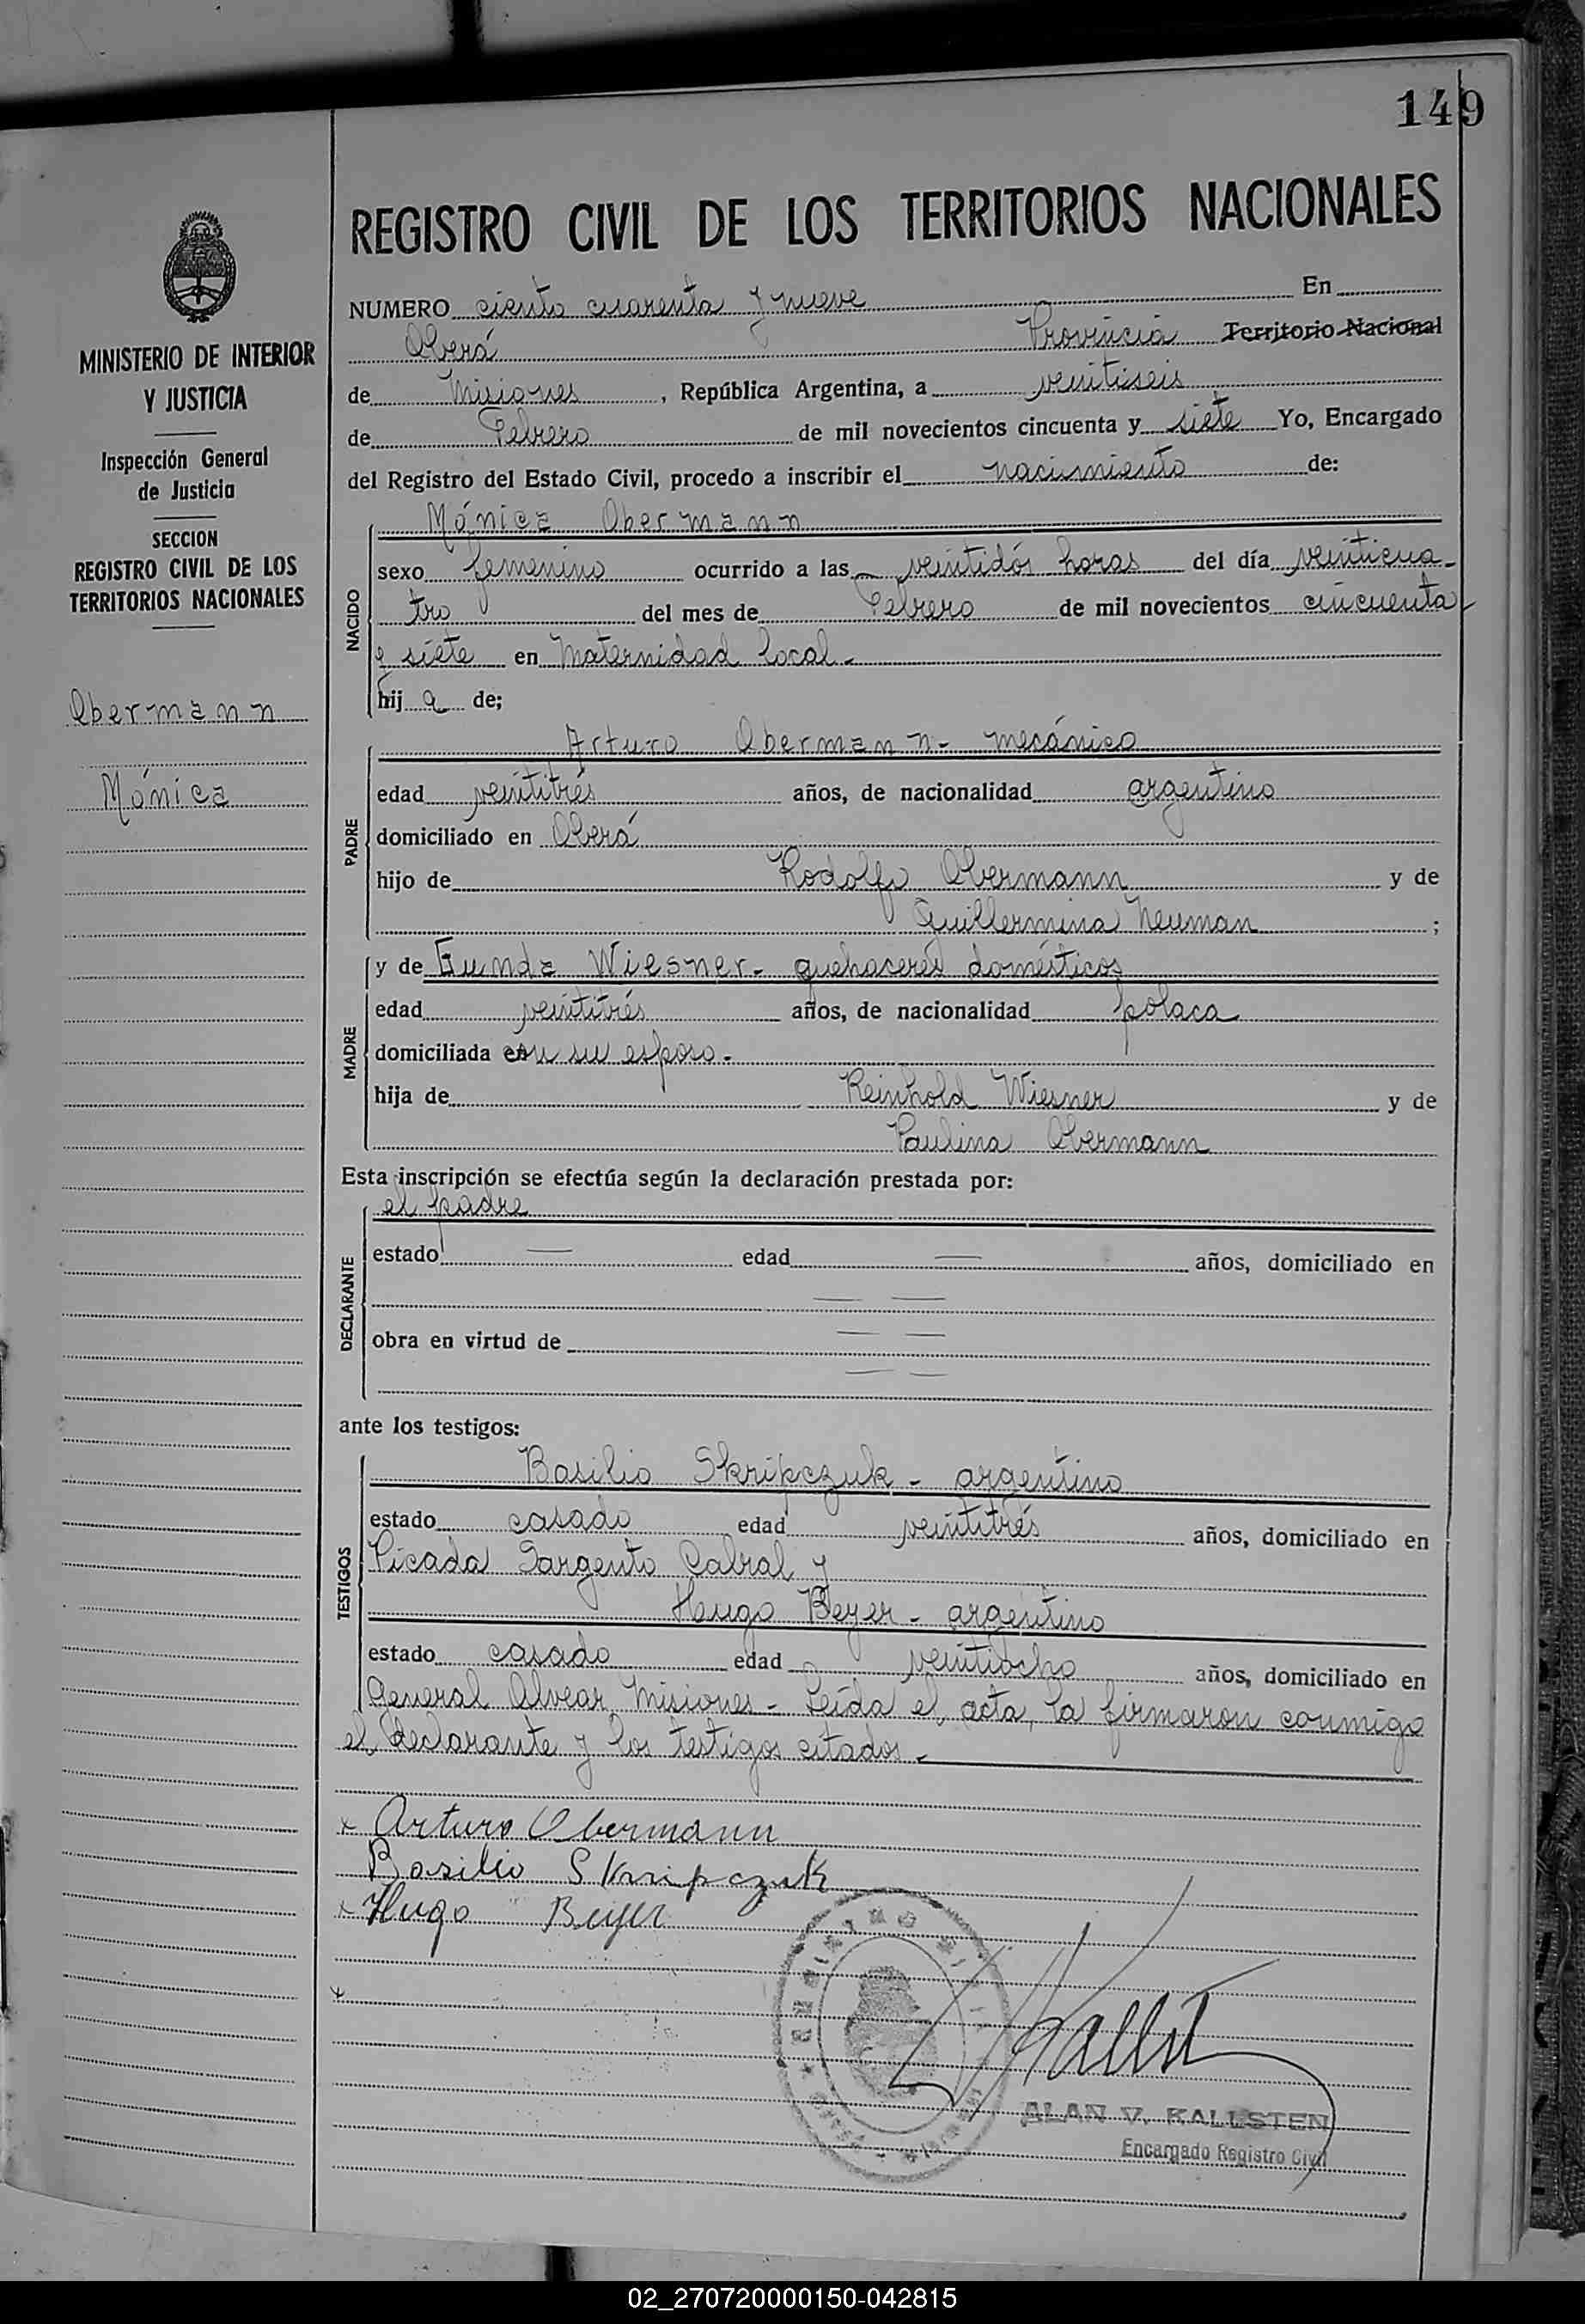 149
REGISTRO CIVIL DE LOS TERRITORIOS NACIONALES
MINISTERIO DE INTERIOR
Y JUSTICIA
Inspección General
de Justicia
SECCION
REGISTRO CIVIL DE LOS
TERRITORIOS NACIONALES
Obermann
Mónica
NUMERO ciento cuarenta y nueve En
Oberá Provincia Territorio Nacional
de Misiones, República Argentina, a veintiseis
de Febrero de mil novecientos cincuenta y siete Yo, Encargado
del Registro del Estado Civil, procedo a inscribir el nacimiento de:
NACIDO
Mónica Obermann
sexo femenino ocurrido a las veintidós horas del día veinticua-
tro del mes de Febrero de mil novecientos cincuenta
y siete en Maternidad local.-
hij a de;
PADRE
Arturo Obermann - mecánico
edad veintitrés años, de nacionalidad argentino
domiciliado en Oberá
hijo de Rodolfo Obermann y de
Guillermina Neuman ;
MADRE
y de Gunda Wiesner - quehaceres domésticos
edad veintitrés años, de nacionalidad polaca
domiciliada con su esposo.-
hija de Reinhold Wiesner y de
Paulina Obermann
Esta inscripción se efectúa según la declaración prestada por:
DECLARANTE
el padre
estado — edad — años, domiciliado en
— —
obra en virtud de — —
— —
ante los testigos:
TESTIGOS
Basilio Skripczuk - argentino
estado casado edad veintitrés años, domiciliado en
Picada Sargento Cabral y
Hugo Beyer - argentino
estado casado edad veintiocho años, domiciliado en
General Alvear, Misiones - Leída el acta, la firmaron conmigo
el declarante y los testigos citados.-
x Arturo Obermann
Basilio Skripczuk
x Hugo Beyer
x
Kallst
ALAN V. KALLSTEN
Encargado Registro Civil
02_270720000150-042815